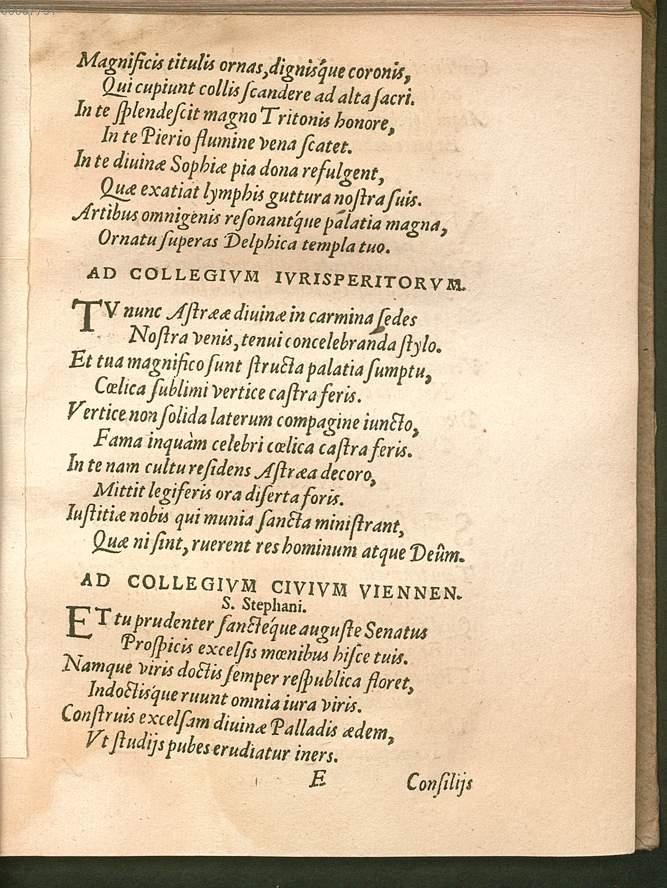 Magnificis titulis ornas, dignisq́ue coronis,
Qui cupiunt collis ſcandere ad alta ſacri.
In te ſplendeſcit magno Tritonis honore,
In te Pierio flumine vena ſcatet.
In te diuinæ Sophiæ pia dona refulgent,
Quæ exatiat lymphis guttura noſtra ſuis.
Artibus omnigenis reſonantq́ue palatia magna,
Ornatu ſuperas Delphica templa tuo.
AD COLLEGIVM IVRISPERITORVM.
TV nunc Aſtrææ diuinæ in carmina ſedes
Noſtra venis, tenui concelebranda ſtylo.
Et tua magnifico ſunt ſtructa palatia ſumptu,
Cœlica ſublimi vertice caſtra feris.
Vertice non ſolida laterum compagine iuncto,
Fama inquàm celebri cœlica caſtra feris.
In te nam cultu reſidens Aſtræa decoro,
Mittit legiferis ora diſerta foris.
Iuſtitiæ nobis qui munia ſancta miniſtrant,
Quæ ni ſint, ruerent res hominum atque Deûm.
AD COLLEGIVM CIVIVM VIENNEN.
S. Stephani.
ET tu prudenter ſancteq́ue auguſte Senatus
Proſpicis excelſis mœnibus hiſce tuis.
Namque viris doctis ſemper reſpublica floret,
Indoctisq́ue ruunt omnia iura viris.
Conſtruis excelſam diuinæ Palladis ædem,
Vt ſtudijs pubes erudiatur iners.
E Conſilijs